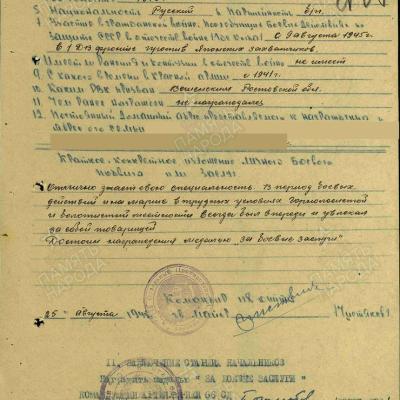 5. Национальность Русский 6. Партийность б/п
7. Участие в гражданской войне, последующие боевые действиях по
защите СССР и отечественной войне (где, когда) с 9 августа 1945 г.
в 1 ДВ фронте против Японских захватчиков.
8. Имеет ли ранения и контузии в отечеств. войне не имеет
9. С какого времени в красной армии с 1941 г.
10. Каким РВК призван Вешенским Ростовской обл.
11. Чем ранее награжден не награждался
12. Постоянный домашний адрес представляемого к награждению и
адрес его семьи
Краткое, конкретное изложение личного боевого
подвига или заслуг
Отлично знает свою специальность. В период боевых
действий и на марше в трудных условиях горнолесистой
и болотистой местности всегда был впереди и увлекал
за собой товарищей
Достоин награждения медалью "за боевые заслуги"
Командир
25 августа 1945 гв. майор Чистяков
II. Заключение старш. начальников
Наградить медалью "ЗА БОЕВЫЕ ЗАСЛУГИ"
66 СД
ПАМЯТЬ НАРОДА